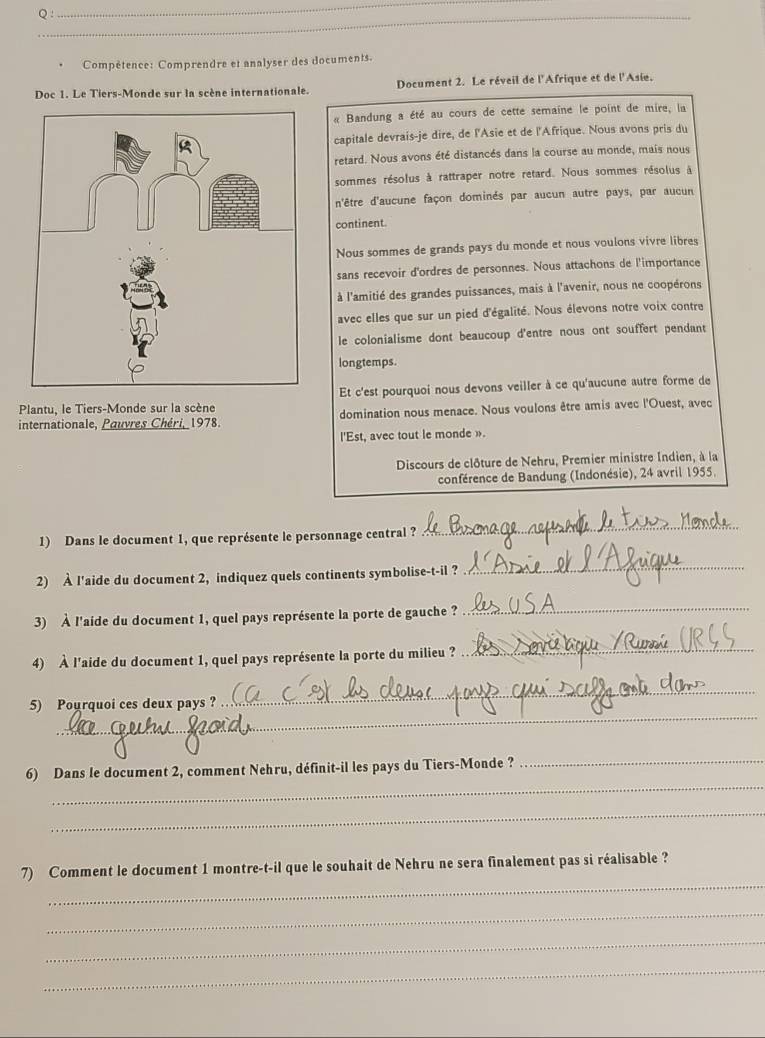 Q :
• Compétence: Comprendre et analyser des documents.
Doc 1. Le Tiers-Monde sur la scène internationale.
TIERS
MONDE
Plantu, le Tiers-Monde sur la scène
internationale, Pauvres Chéri, 1978.
Document 2. Le réveil de l'Afrique et de l'Asie.
« Bandung a été au cours de cette semaine le point de mire, la
capitale devrais-je dire, de l'Asie et de l'Afrique. Nous avons pris du
retard. Nous avons été distancés dans la course au monde, mais nous
sommes résolus à rattraper notre retard. Nous sommes résolus à
n'être d'aucune façon dominés par aucun autre pays, par aucun
continent.
Nous sommes de grands pays du monde et nous voulons vivre libres
sans recevoir d'ordres de personnes. Nous attachons de l'importance
à l'amitié des grandes puissances, mais à l'avenir, nous ne coopérons
avec elles que sur un pied d'égalité. Nous élevons notre voix contre
le colonialisme dont beaucoup d'entre nous ont souffert pendant
longtemps.
Et c'est pourquoi nous devons veiller à ce qu'aucune autre forme de
domination nous menace. Nous voulons être amis avec l'Ouest, avec
l'Est, avec tout le monde ».
Discours de clôture de Nehru, Premier ministre Indien, à la
conférence de Bandung (Indonésie), 24 avril 1955.
1) Dans le document 1, que représente le personnage central ? le le tiers Monde
2) À l'aide du document 2, indiquez quels continents symbolise-t-il ? l'Asie et l'Afrique
3) À l'aide du document 1, quel pays représente la porte de gauche ? les USA
4) À l'aide du document 1, quel pays représente la porte du milieu ? les soviétique / Russie URSS
5) Pourquoi ces deux pays ? Ca c'est les deux pays qui dans
froid
6) Dans le document 2, comment Nehru, définit-il les pays du Tiers-Monde ?
7) Comment le document 1 montre-t-il que le souhait de Nehru ne sera finalement pas si réalisable ?